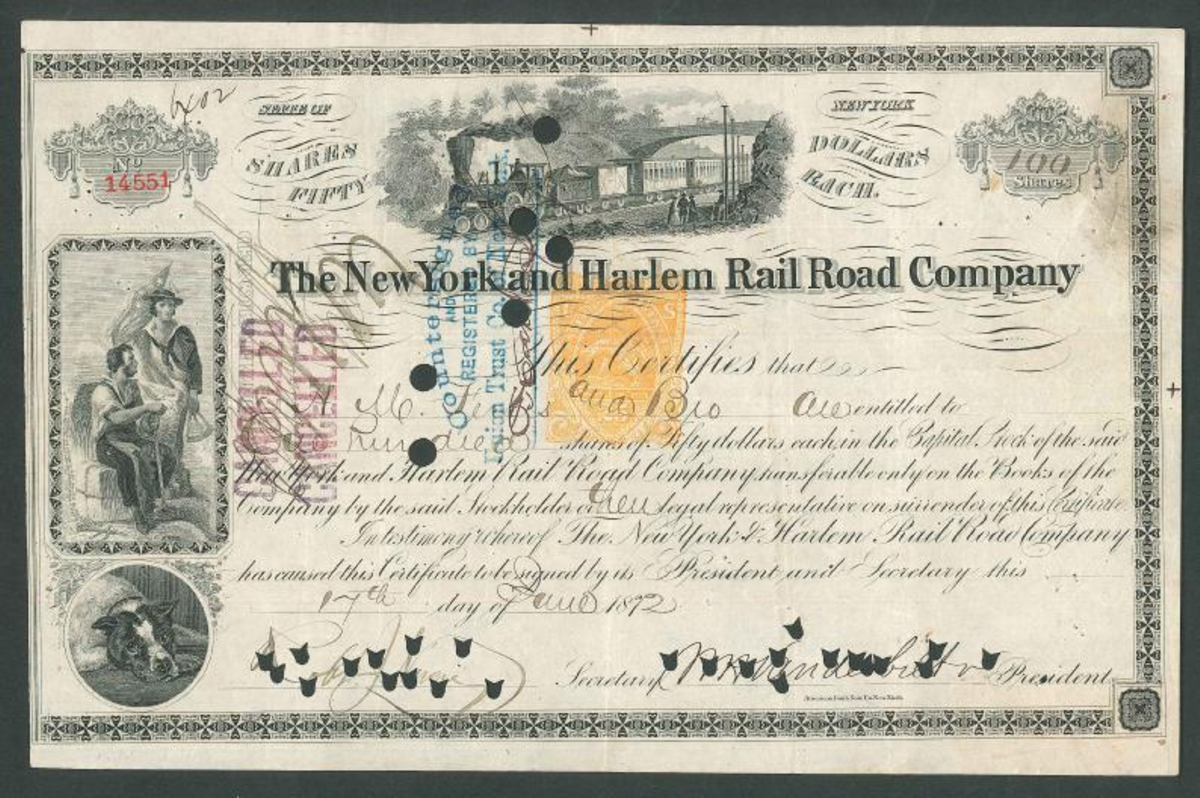 6402
STATE OF
NEW YORK
No
14551
SHARES
FIFTY
DOLLARS
EACH.
100
Shares
The New York and Harlem Rail Road Company
Countersigned
AND
REGISTERED BY
Union Trust Co. of New York
CANCELLED
CANCELLED
This Certifies that
and Bro are entitled to
hundred shares of Fifty dollars each, in the Capital Stock of the said
New York and Harlem Rail Road Company, transferable only on the Books of the
Company by the said Stockholder or their legal representative on surrender of this Certificate.
In testimony whereof The New York & Harlem Rail Road Company
has caused this Certificate to be signed by its President and Secretary this
17th day of June 1872
Secretary
Wm H Vanderbilt President
American Bank Note Co. New York.